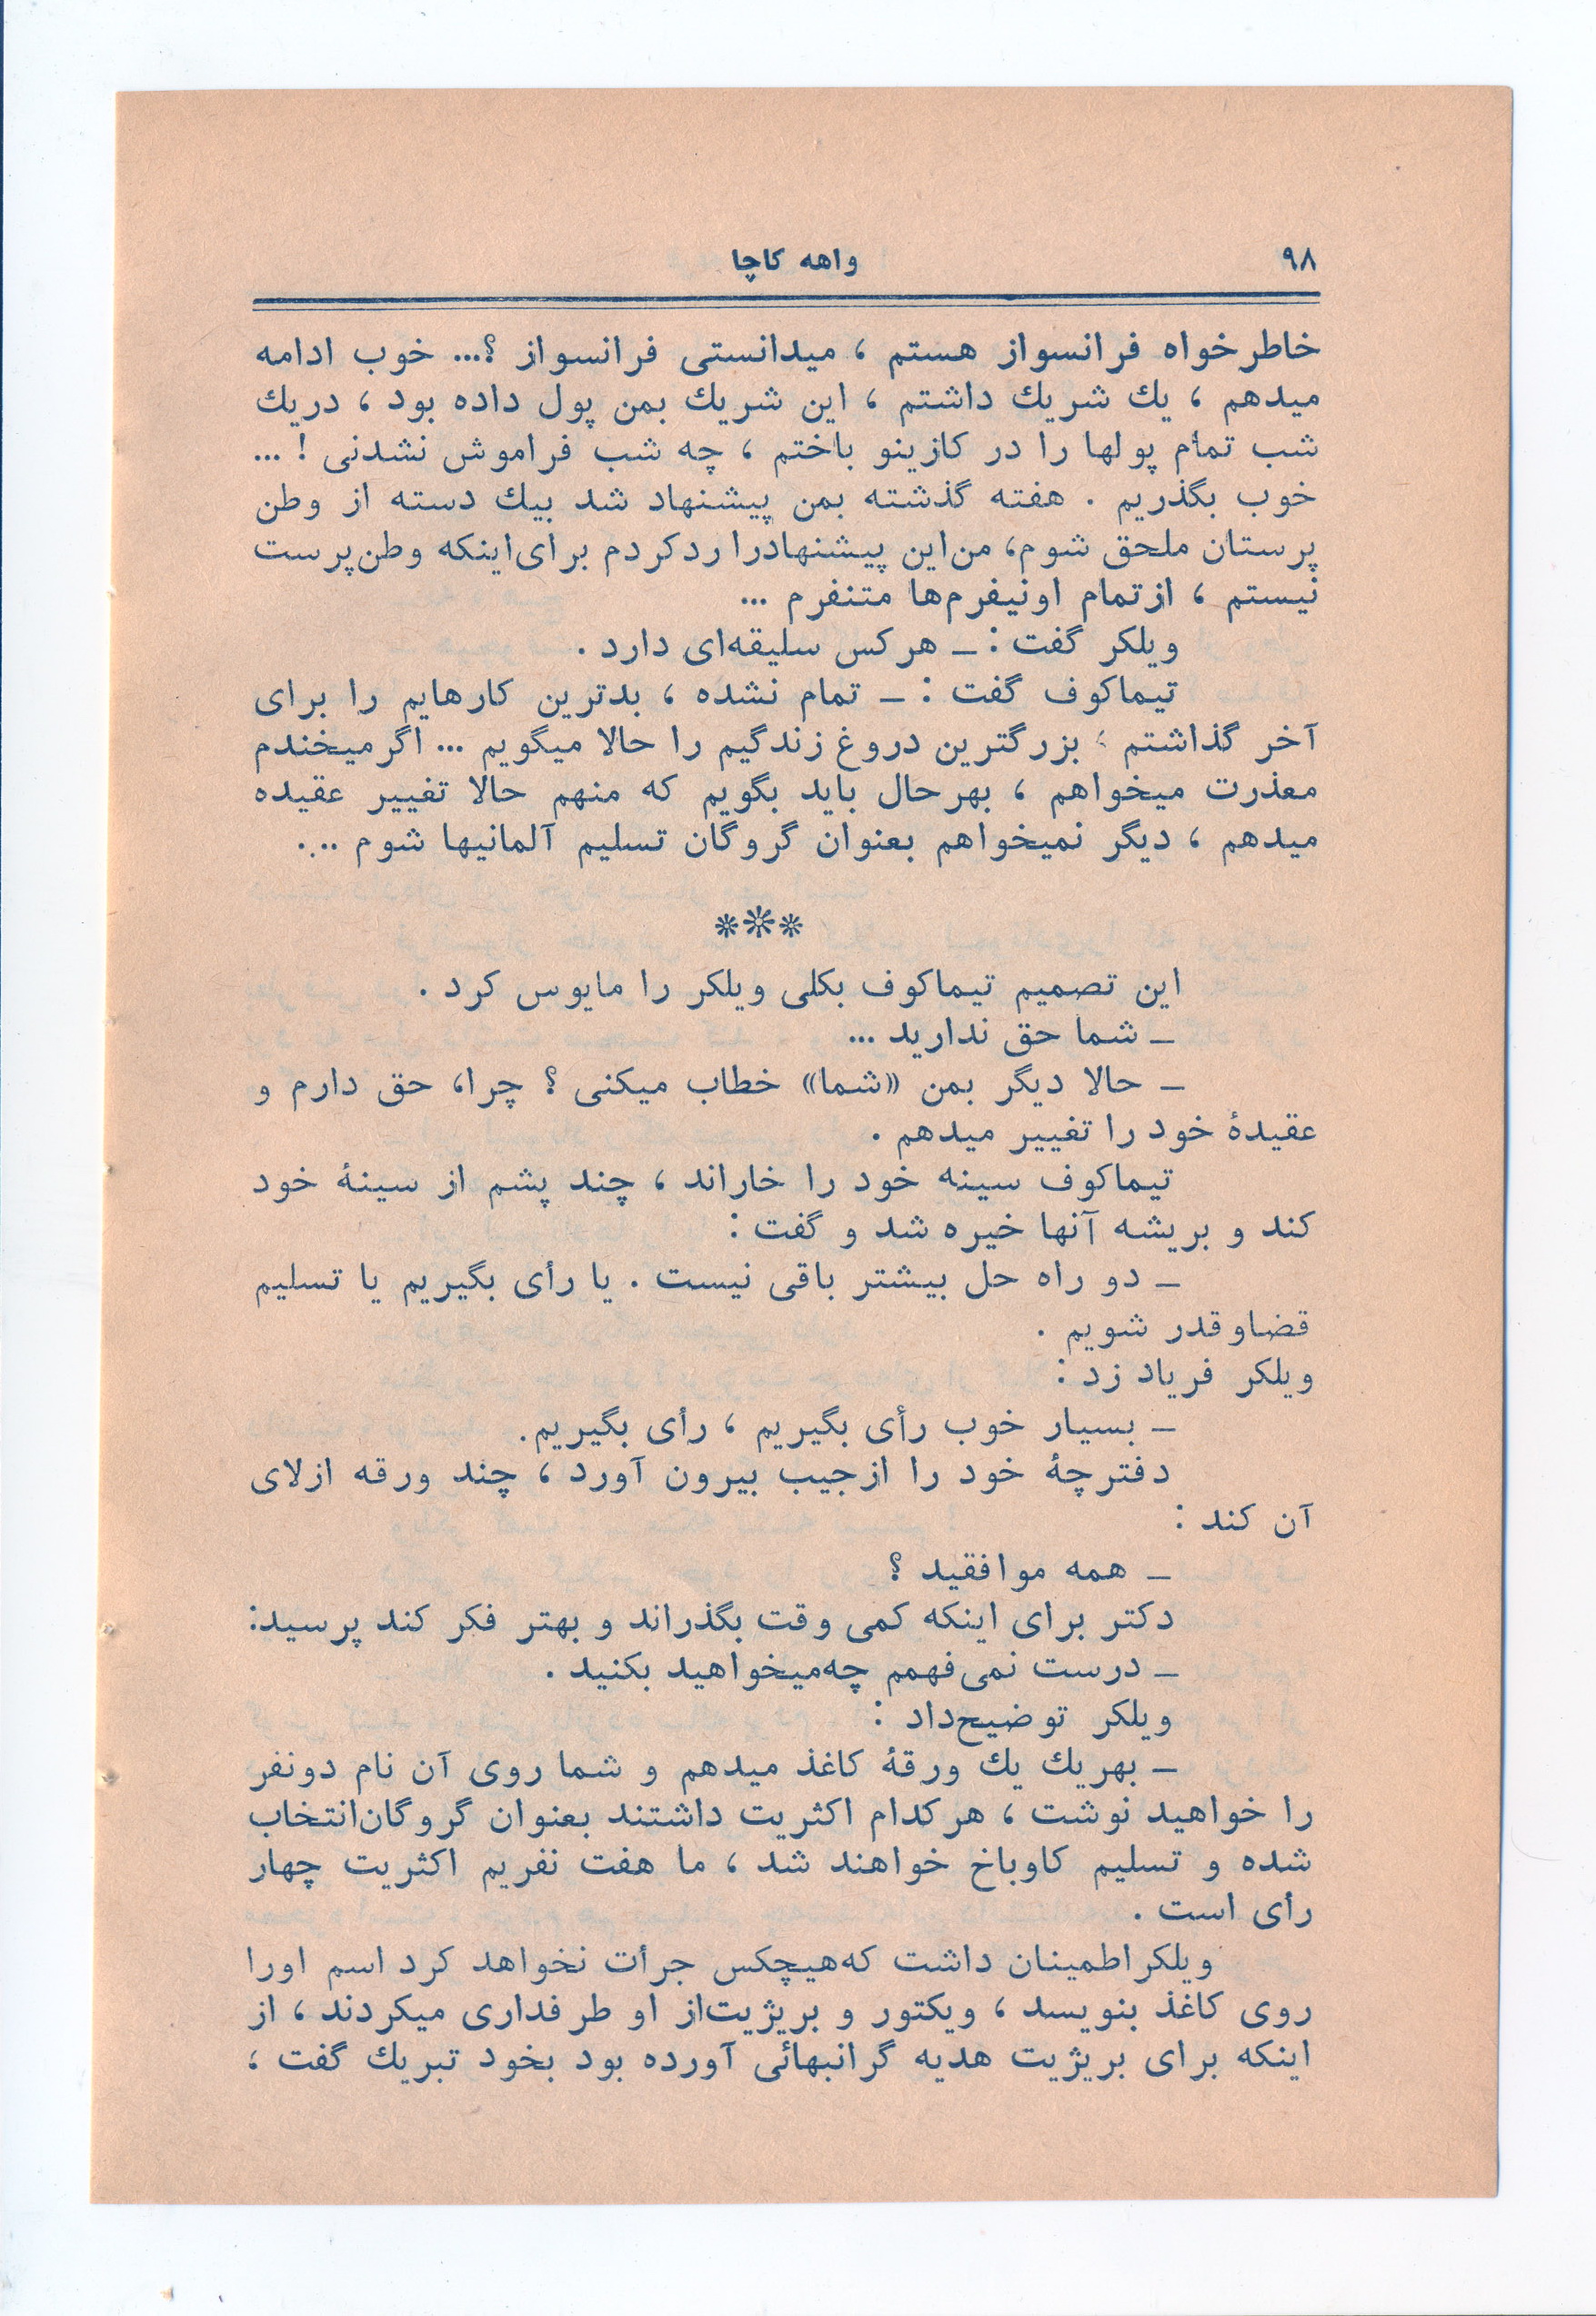 ۹۸
واهه کاچا
خاطرخواه فرانسواز هستم ، میدانستی فرانسواز ؟... خوب ادامه
میدهم ، یك شریك داشتم ، این شریك بمن پول داده بود ، دریك
شب تمام پولها را در کازینو باختم ، چه شب فراموش نشدنی ! ...
خوب بگذریم . هفته گذشته بمن پیشنهاد شد بیك دسته از وطن
پرستان ملحق شوم، من‌این پیشنهادرا ردکردم برای‌اینکه وطن‌پرست
نیستم ، ازتمام اونیفرم‌ها متنفرم ...
ویلکر گفت : ـ هرکس سلیقه‌ای دارد .
تیماکوف گفت : ـ تمام نشده ، بدترین کارهایم را برای
آخر گذاشتم ؛ بزرگترین دروغ زندگیم را حالا میگویم ... اگرمیخندم
معذرت میخواهم ، بهرحال باید بگویم که منهم حالا تغییر عقیده
میدهم ، دیگر نمیخواهم بعنوان گروگان تسلیم آلمانیها شوم ...
***
این تصمیم تیماکوف بکلی ویلکر را مایوس کرد .
ـ شما حق ندارید ...
ـ حالا دیگر بمن «شما» خطاب میکنی ؟ چرا، حق دارم و
عقیدهٔ خود را تغییر میدهم .
تیماکوف سینه خود را خاراند ، چند پشم از سینهٔ خود
کند و بریشه آنها خیره شد و گفت :
ـ دو راه حل بیشتر باقی نیست . یا رأی بگیریم یا تسلیم
قضاوقدر شویم .
ویلکر فریاد زد :
ـ بسیار خوب رأی بگیریم ، رأی بگیریم.
دفترچهٔ خود را ازجیب بیرون آورد ، چند ورقه ازلای
آن کند :
ـ همه موافقید ؟
دکتر برای اینکه کمی وقت بگذراند و بهتر فکر کند پرسید:
ـ درست نمی‌فهمم چه‌میخواهید بکنید .
ویلکر توضیح‌داد :
ـ بهریك یك ورقهٔ کاغذ میدهم و شما روی آن نام دونفر
را خواهید نوشت ، هرکدام اکثریت داشتند بعنوان گروگان‌انتخاب
شده و تسلیم کاوباخ خواهند شد ، ما هفت نفریم اکثریت چهار
رأی است .
ویلکراطمینان داشت که‌هیچکس جرأت نخواهد کرد اسم اورا
روی کاغذ بنویسد ، ویکتور و بریژیت‌از او طرفداری میکردند ، از
اینکه برای بریژیت هدیه گرانبهائی آورده بود بخود تبریك گفت ،